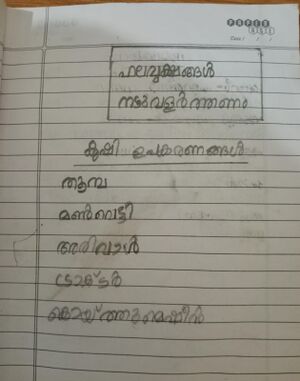 PAPER
Date: / /
ഫലവൃക്ഷങ്ങൾ
നട്ടുവളർത്തണം
കൃഷി ഉപകരണങ്ങൾ
തൂമ്പ
മൺവെട്ടി
അരിവാൾ
ട്രാക്ടർ
കൊയ്ത്തുമെഷീൻ